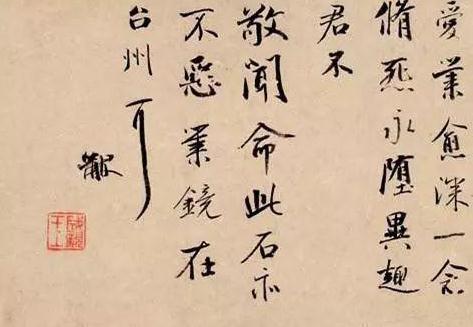 愛業愈深一念
脩永墮異趣
君不
敬聞命此石亦
不惡業鏡在
台州耳
黻